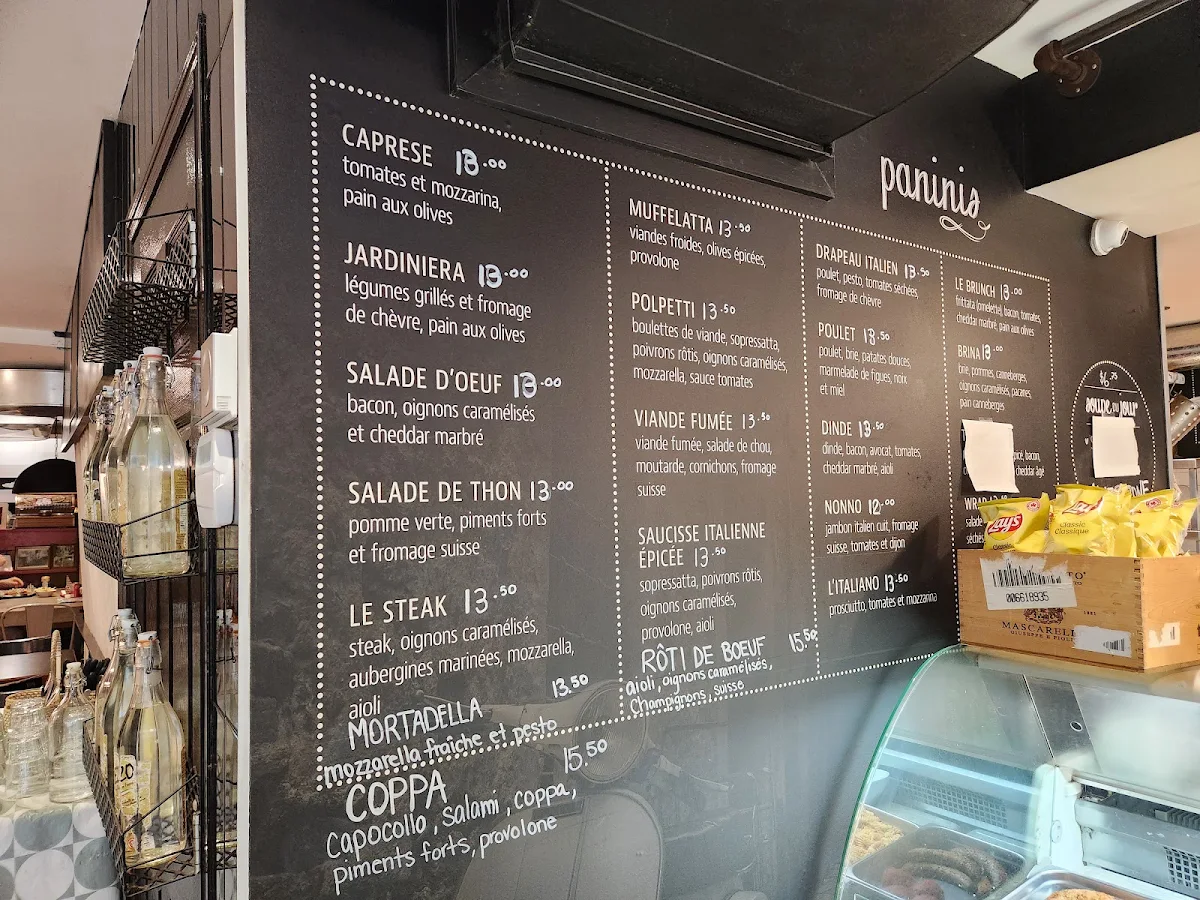 paninis
CAPRESE 13.00
tomates et mozzarina,
pain aux olives
JARDINIERA 13.00
légumes grillés et fromage
de chèvre, pain aux olives
SALADE D'OEUF 13.00
bacon, oignons caramélisés
et cheddar marbré
SALADE DE THON 13.00
pomme verte, piments forts
et fromage suisse
LE STEAK 13.50
steak, oignons caramélisés,
aubergines marinées, mozzarella,
aioli
MORTADELLA 13.50
mozzarella fraîche et pesto
COPPA 15.50
Capocollo, salami, coppa,
piments forts, provolone
MUFFELATTA 13.50
viandes froides, olives épicées,
provolone
POLPETTI 13.50
boulettes de viande, sopressatta,
poivrons rôtis, oignons caramélisés,
mozzarella, sauce tomates
VIANDE FUMÉE 13.50
viande fumée, salade de chou,
moutarde, cornichons, fromage
suisse
SAUCISSE ITALIENNE
ÉPICÉE 13.50
sopressatta, poivrons rôtis,
oignons caramélisés,
provolone, aioli
RÔTI DE BOEUF 15.50
aioli, oignons caramélisés,
Champignons, suisse
DRAPEAU ITALIEN 13.50
poulet, pesto, tomates séchées,
fromage de chèvre
POULET 13.50
poulet, brie, patates douces,
marmelade de figues, noix
et miel
DINDE 13.50
dinde, bacon, avocat, tomates,
cheddar marbré, aioli
NONNO 12.00
jambon italien cuit, fromage
suisse, tomates et dijon
L'ITALIANO 13.50
prosciutto, tomates et mozzarina
LE BRUNCH 13.00
frittata (omelette), bacon, tomates,
cheddar marbré, pain aux olives
BRINA 13.00
brie, pommes, canneberges,
oignons caramélisés, pacanes,
pain canneberges
bacon,
cheddar âgé
WRAP
salade
$6.75
soupe du jour
Lay's
Classic
Classique
006618935
MASCARELLO